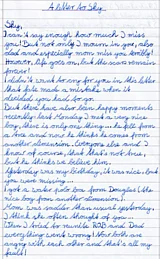 A letter to Sky
Sky,
I can't say enough how much I miss
you! But not only I mourn for you, also
dad and especially mom miss you terribly!
However, life goes on, but this scar remains
forever!
I didn't want to cry for you in this letter
that fate made a mistake when it
decided you had to go.
But there have also been happy moments
recently: last Monday I met a very nice
boy, there is only one thing... he fell from
a tree and now he thinks he comes from
another dimension. Everyone else and I
know of course, that that's not true,
but he thinks we believe him.
Yesterday was my birthday, it was nice, but
you were missing...
I got a water polo box from Douglas (the
nice boy from another dimension).
Mom was sadder than usual yesterday,
I think she often thought of you...
When I tried to mumble Dad said
everything went wrong! Now both are
angry with each other and that's all my
fault!